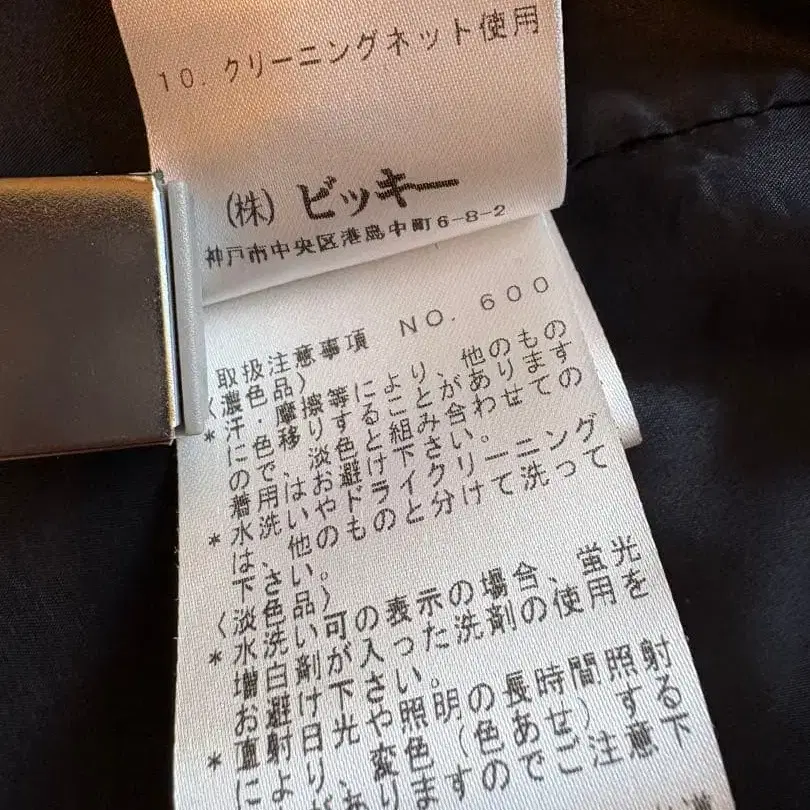 10. クリーニングネット使用
(株) ビッキー
神戸市中央区港島中町6-8-2
取扱注意事項 NO. 600
〈濃色品〉
*汗・摩擦等により、他のもの
に色移りすることがあります
ので、淡色と組み合わせての
着用はお避け下さい。
*水洗いやドライクリーニング
は、他のものと分けて洗って
下さい。
〈淡色品〉
*水洗い可の表示の場合、蛍光
増白剤が入った洗剤の使用を
お避け下さい。
*直射日光や照明の長時間照射
により、変色(色あせ)する
がありますのでご注意下